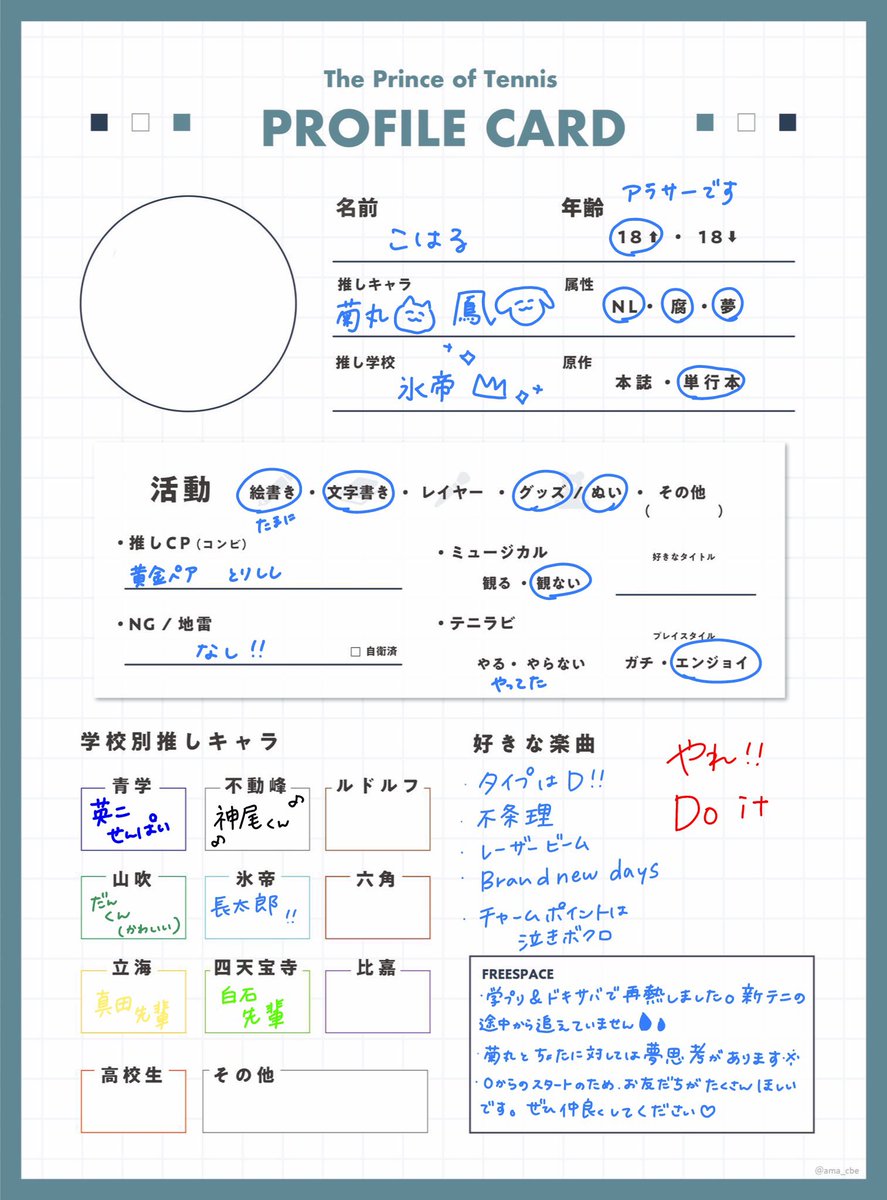 The Prince of Tennis
PROFILE CARD
名前
こはる
年齢
アラサーです
18⬆・18⬇
推しキャラ
菊丸 鳳
属性
NL・腐・夢
推し学校
氷帝
原作
本誌・単行本
活動
絵書き・文字書き・レイヤー・グッズ/ぬい・その他
たまに
( )
・推しCP(コンビ)
黄金ペア とりしし
・ミュージカル
観る・観ない
好きなタイトル
・NG / 地雷
なし!!
□ 自衛済
・テニラビ
やる・やらない
やってた
プレイスタイル
ガチ・エンジョイ
学校別推しキャラ
青学
英二
せんぱい
不動峰
神尾くん♪
♪
ルドルフ
山吹
だん
くん
(かわいい)
氷帝
長太郎!!
六角
立海
真田
先輩
四天宝寺
白石
先輩
比嘉
高校生
その他
好きな楽曲
・タイプはD!!
・不条理
・レーザービーム
・Brand new days
・チャームポイントは
泣きボクロ
やれ!!
Do it
FREESPACE
・学プリ&ドキサバで再熱しました。新テニの
途中から追えていません
・菊丸とちょたに対しては夢思考があります※
・0からのスタートのため、お友だちがたくさんほしい
です。ぜひ仲良くしてください♡
@ama_cbe